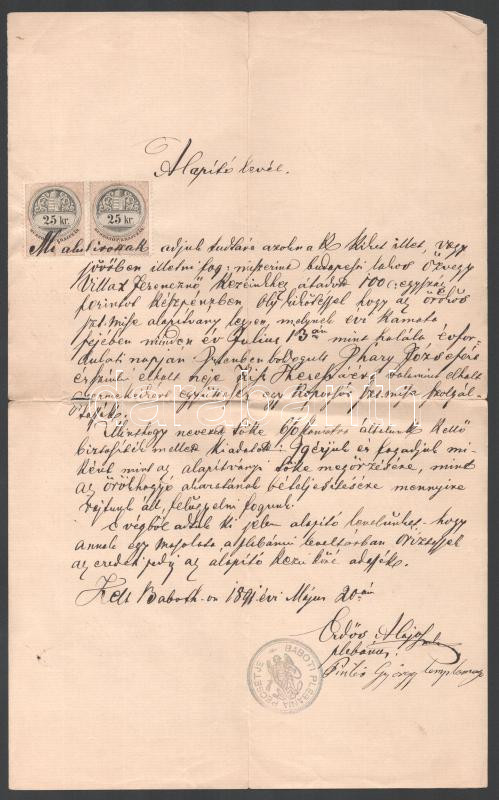 Alapító levél.
25 kr. 25 kr.
Mi alulírottak adjuk tudtára azoknak kiket illet, vagy
jövőben illetni fog: miszerint budapesti lakos özvegy
Ferenczné, kezeinkhez átadott 100 egyszáz
forintot készpénzben oly kikötéssel hogy az örökös
szt. mise alapítvány legyen, melynek évi kamata
fejében minden év Julius 13án mint halála évfor-
dulati napján Istenben boldogult József
elhalt neje valamint elhalt
gyermekeikért együttesen egy szt. mise szolgál-
tassék.
Minthogy nevezett tőke 6% kamatra általunk kellő
biztosíték mellett kiadatott: Igérjük és fogadjuk mi-
kénti mint az alapítványi tőke megőrzésére, mint
az örökhagyó akaratának beteljesítésére mennyire
rajtunk áll, felügyelni fogunk.
E végből adtuk ki jelen alapító levelünket hogy
annak egy másolata a plébániai levéltárban őriztessék
az eredeti pedig az alapító kezeihez adassék.
Kelt Baboth-on 1891 évi Május 20án
Erdős Alajos
plébános
Pintér György
BABOTI PLEBANIA PECSETJE